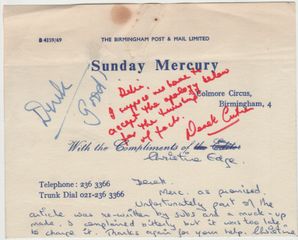 B 4359/69
THE BIRMINGHAM POST & MAIL LIMITED
Sunday Mercury
Colmore Circus,
Birmingham, 4
Derek
Good!
Debi.
I suppose we have to
accept the apology below
for the
of fact.
Derek
With the Compliments of the Editor
Christine Edge.
Telephone: 236 3366
Trunk Dial 021-236 3366
Derek.
Merc. as promised.
Unfortunately part of the
article was re-written by subs and a muck-up
made. I complained bitterly but it was too late
to change it. Thanks again for your help. Christine